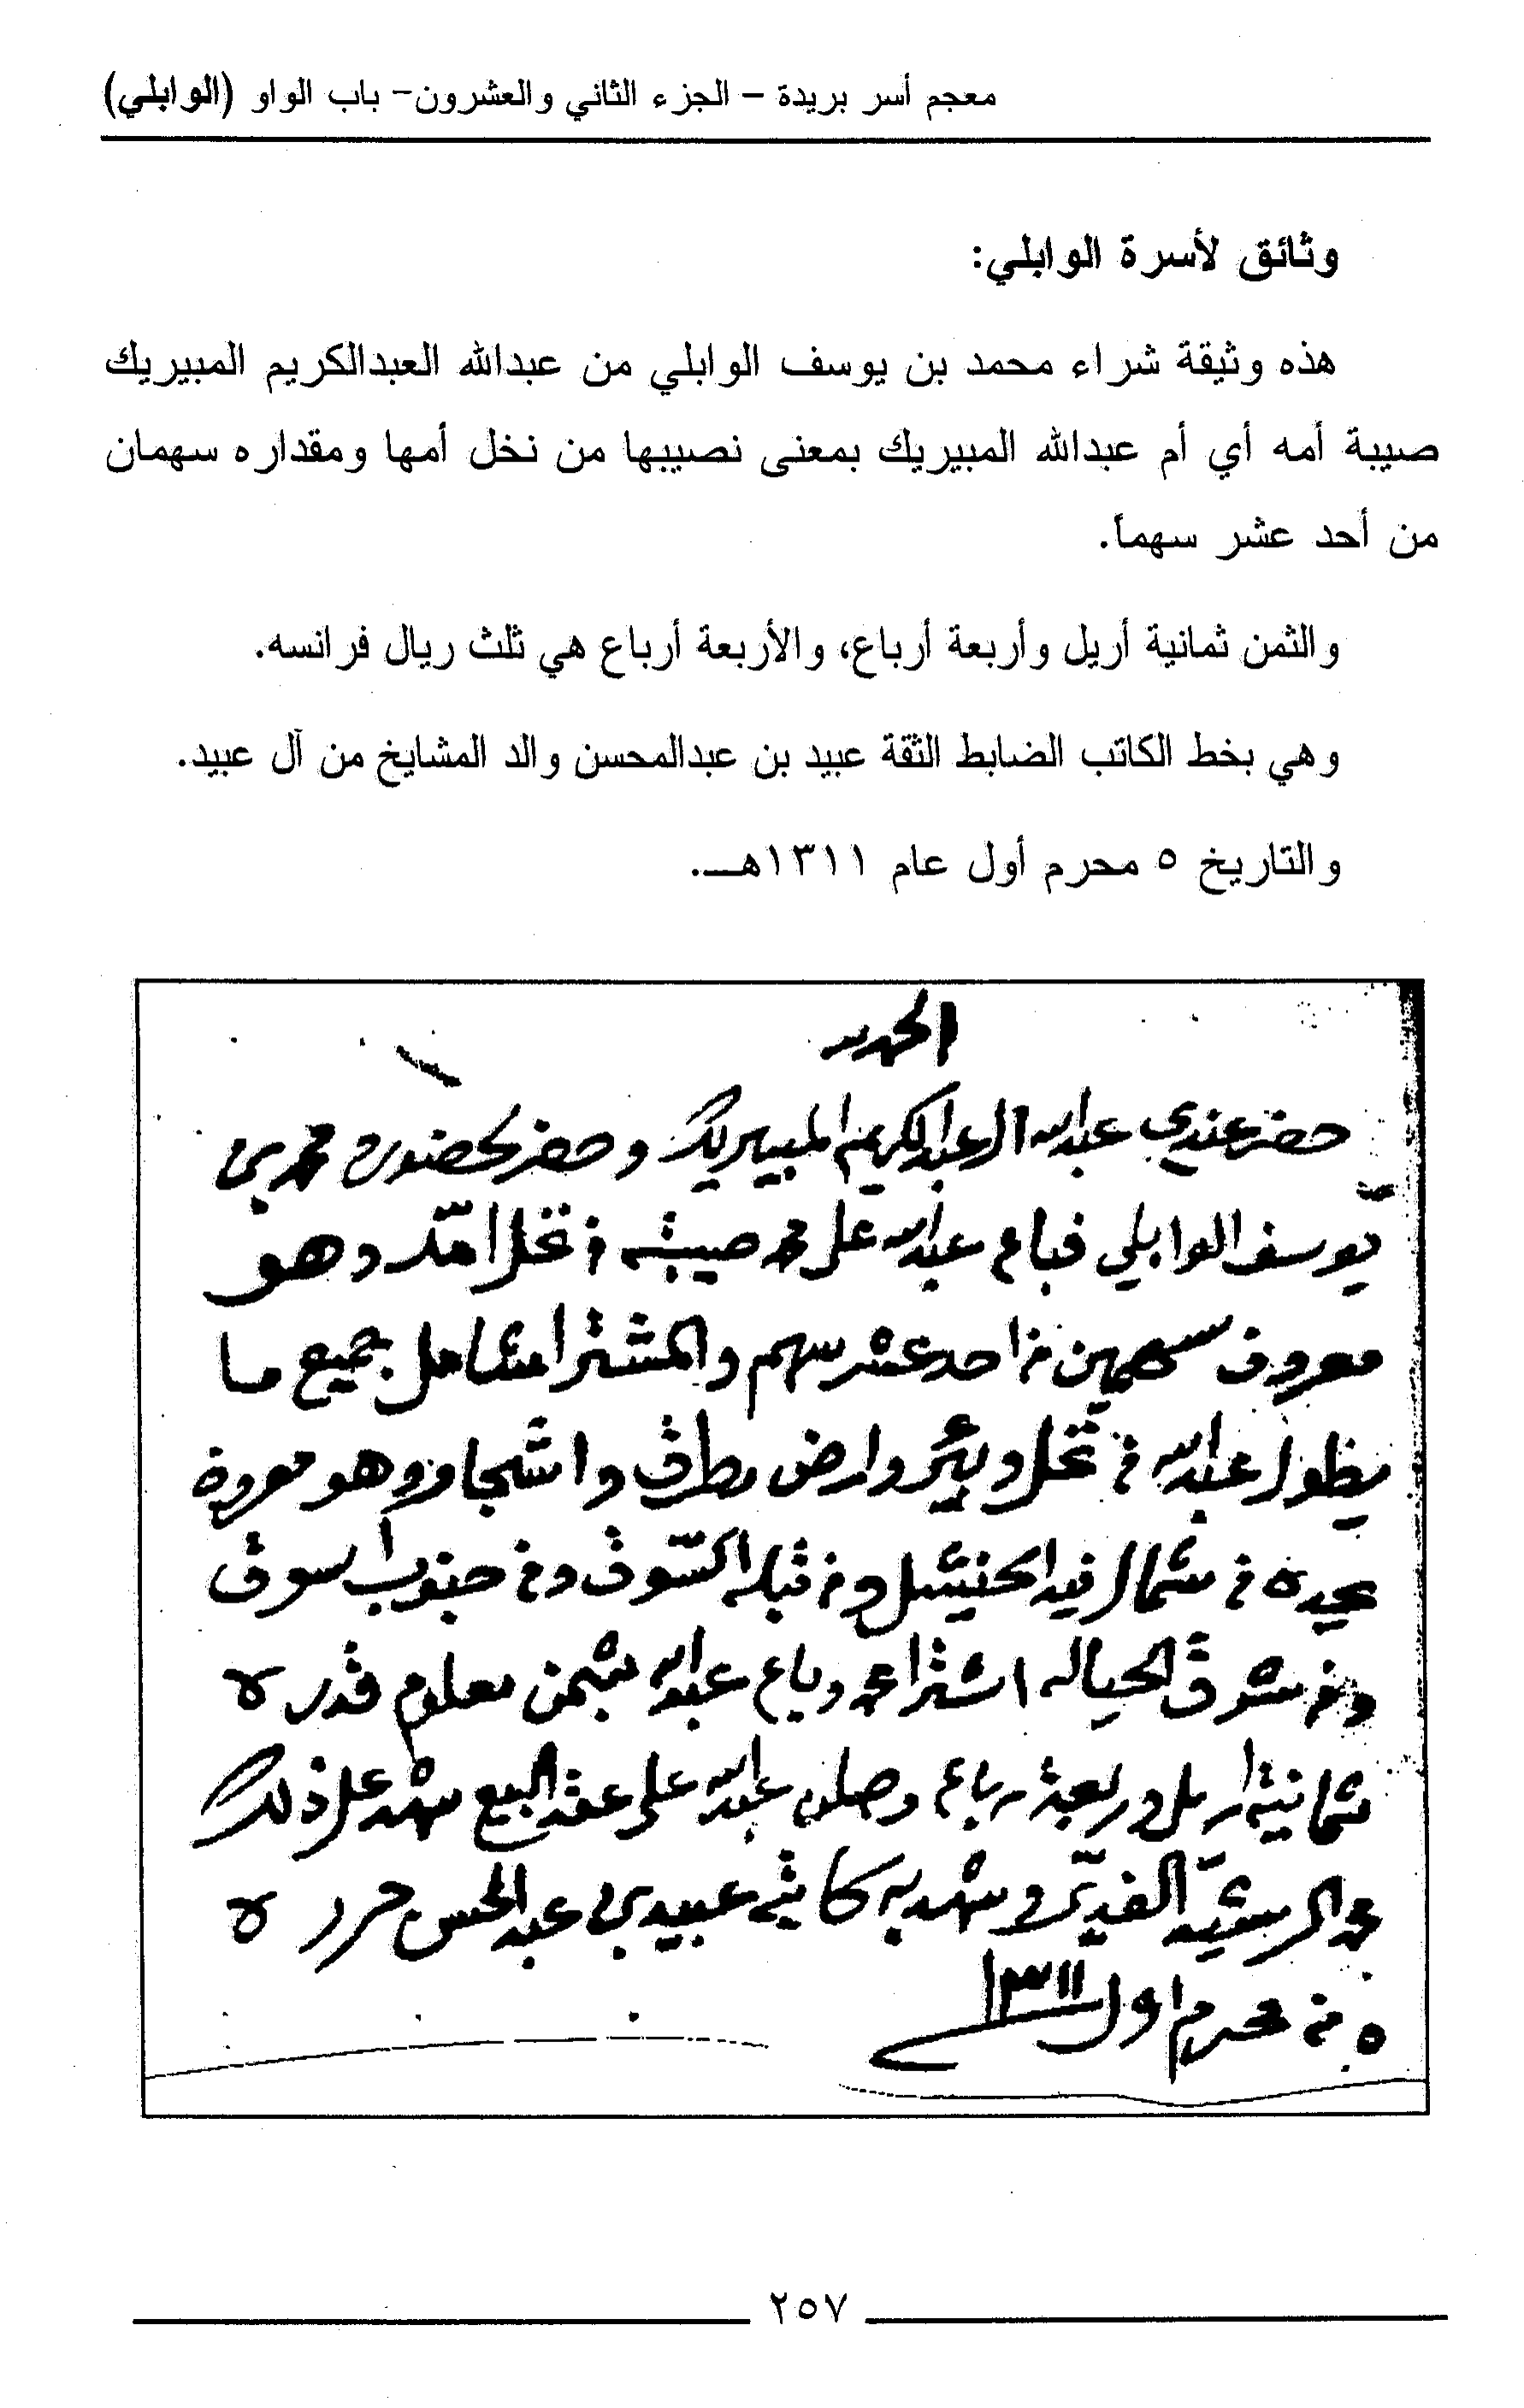 معجم أسر بريدة – الجزء الثاني والعشرون- باب الواو (الوابلي)
وثائق لأسرة الوابلي:
هذه وثيقة شراء محمد بن يوسف الوابلي من عبدالله العبدالكريم المبيريك
صيبة أمه أي أم عبدالله المبيريك بمعنى نصيبها من نخل أمها ومقداره سهمان
من أحد عشر سهماً.
والثمن ثمانية أريل وأربعة أرباع، والأربعة أرباع هي ثلث ريال فرانسه.
وهي بخط الكاتب الضابط الثقة عبيد بن عبدالمحسن والد المشايخ من آل عبيد.
والتاريخ ٥ محرم أول عام ١٣١١هـ.
الحمد لله
حضر عندي عبدالله ال عبدالكريم المبيريك وحضر لحضوره محمد بن
يوسف الوابلي فباع عبدالله على محمد صيبته من نخل امه وهو
معروف سهمين من احد عشر سهم والمشترا مشامل جميع ما
يطول عبدالله من نخل وبير وارض وطرق واشجار وهو معروف
يحده من شمال فيد الحنيشل ومن قبله السوق ومن جنوب السوق
ومن شرق الحياله اشترا محمد وباع عبدالله بثمن معلوم قدره
ثمانية اريل وربعة رباع وصلن عبدالله على عقد البيع شهد على ذلك
محمد الفديري وشهد به كاتبه عبيد بن عبدالمحسن حرر
٥ من محرم اول ١٣١١
٢٥٧